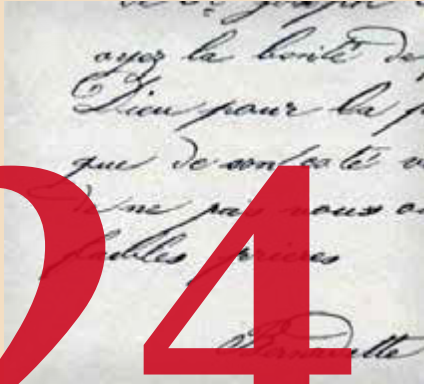 ayez la bonté de
Dieu pour la
que de son coté
de ne pas nous
faibles prieres
24
Bernadette